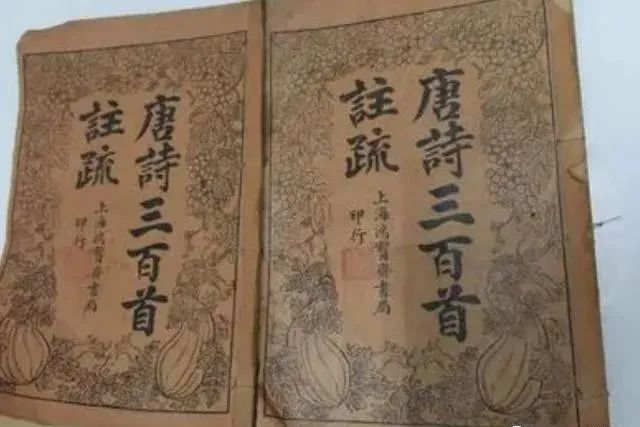 唐詩三百首
註疏
上海鴻寶齋書局
印行
唐詩三百首
註疏
上海鴻寶齋書局
印行